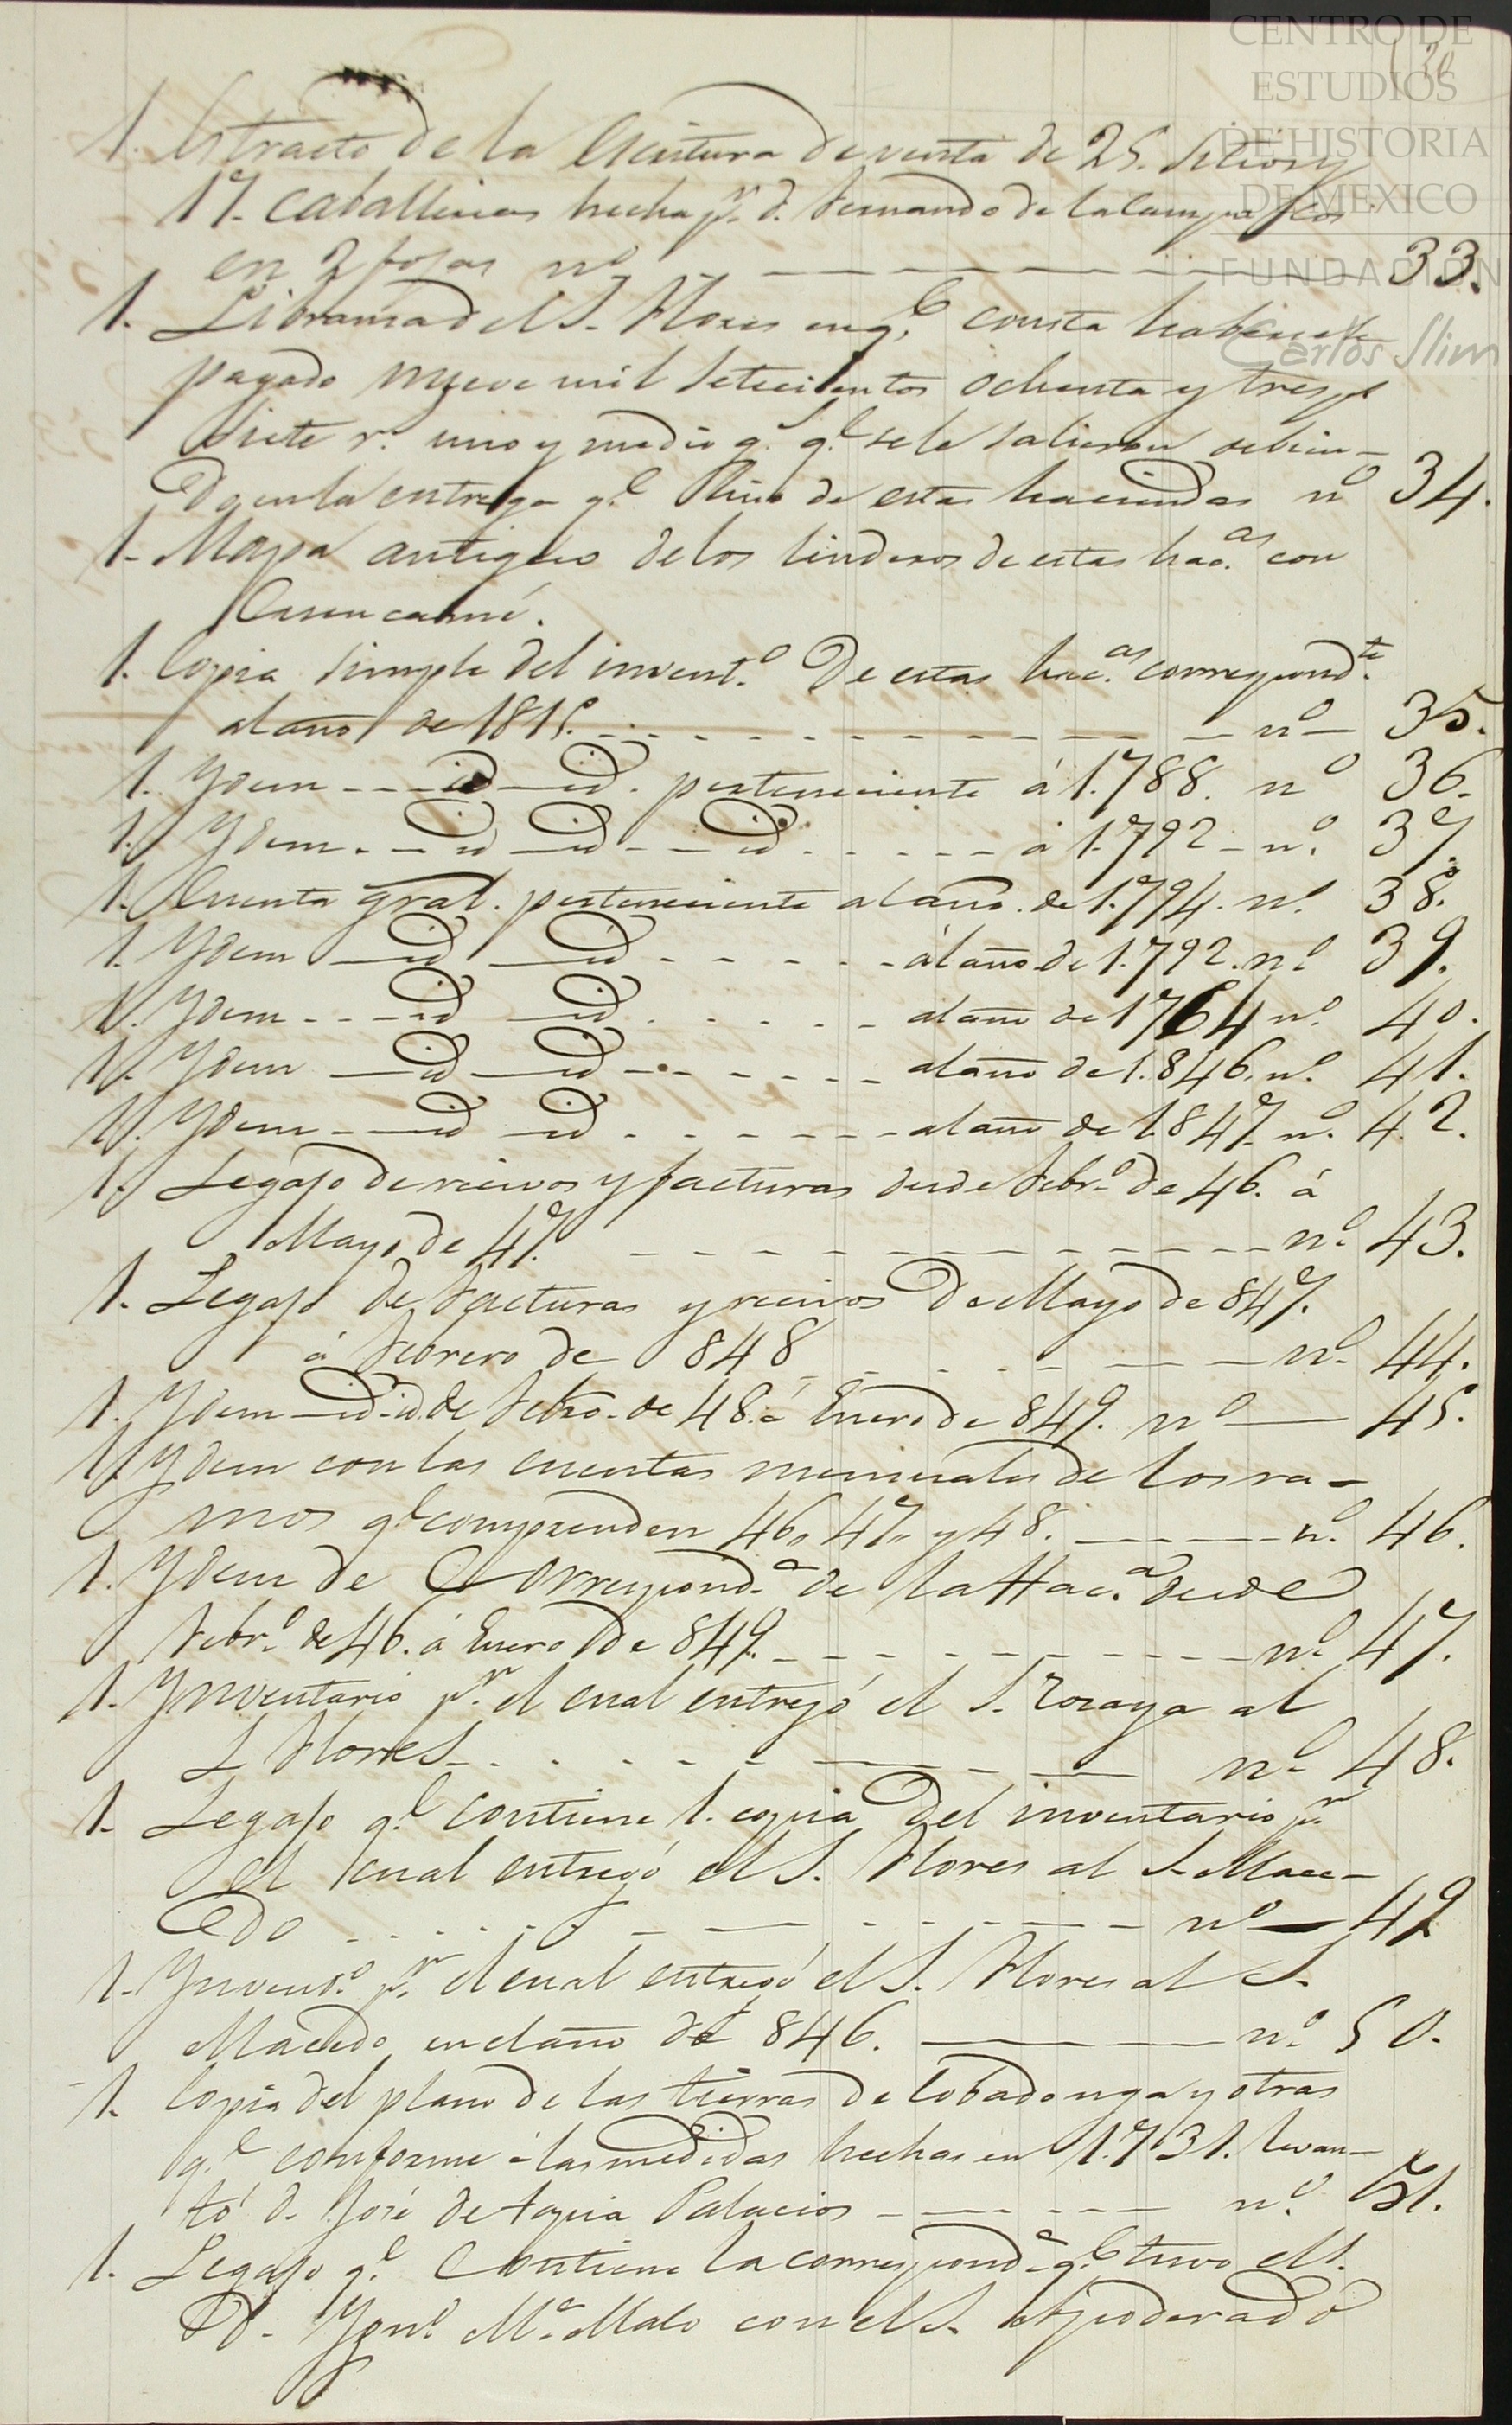 CENTRO DE
ESTUDIOS
DE HISTORIA
DE MEXICO
FUNDACIÓN
Carlos Slim
130
1. Estracto de la Escritura de venta de 25. Sitios y
17. caballerias hecha p.r d. Fernando de la Campa Cos
en 2 fojas n.o 33.
1. Libranza del S. Flores en q.e consta haberse
pagado nueve mil setecientos ochenta y tres p.s
siete r.s uno y medio g.s q.e se le salieron debien-
do en la entrega q.e hizo de estas haciendas n.o 34.
1. Mapa antiguo de los linderos de estas hac.as con
Cuencamé.
1. Copia simple del invent.o de estas hac.as correspond.te
al año de 1815. - - - n.o 35.
1. Ydem - - - id - id. perteneciente á 1.788. n.o 36.
1. Ydem. - - id - id - - id - - - - - á 1.792 - n.o 37.
1. Cuenta gral. perteneciente al año de 1.794. n.o 38.
1. Ydem - id - id - - - - - al año de 1.792. n.o 39.
1. Ydem - - - id - id - - - - - al año de 1764 n.o 40.
1. Ydem - id - id - - - - - - al año de 1.846. n.o 41.
1. Ydem - - id - id - - - - - - al año de 1.847. n.o 42.
1. Legajo de recivos y facturas desde Febr.o de 46. á
Mayo de 47. - - - - - - - - - - - n.o 43.
1. Legajo de facturas y recivos de Mayo de 847.
á Febrero de 848 - - - - - - n.o 44.
1. Ydem - id - id. de Febro. de 48. á Enero de 849. n.o - 45.
1. Ydem con las cuentas mensuales de los ra-
mos q.e comprenden 46, 47, y 48. - - - n.o 46.
1. Ydem de Correspond.a de la Hac.a desde
Febr.o de 46. á Enero de 849. - - - - - - - - n.o 47.
1. Ynventario p.r el cual entregó el S. Zoraya al
S. Flores - - - - - - - - n.o 48.
1. Legajo q.e contiene 1. copia del inventario p.r
el cual entregó el S. Flores al S. Mace-
do - - - - - - - - - n.o - 49
1. Ynvent.o p.r el cual entregó el S. Flores al S.
Macedo en el año de 846. - - - n.o 50.
1. Copia del plano de las tierras de Cobadonga y otras
q.e conforme á las medidas hechas en 1.731. levan-
tó d. José de Palacios - - - - - n.o 51.
1. Legajo q.e contiene la correspond.a q.e tuvo el S.
D. Ygn.o M.a Malo con el S. Apoderado